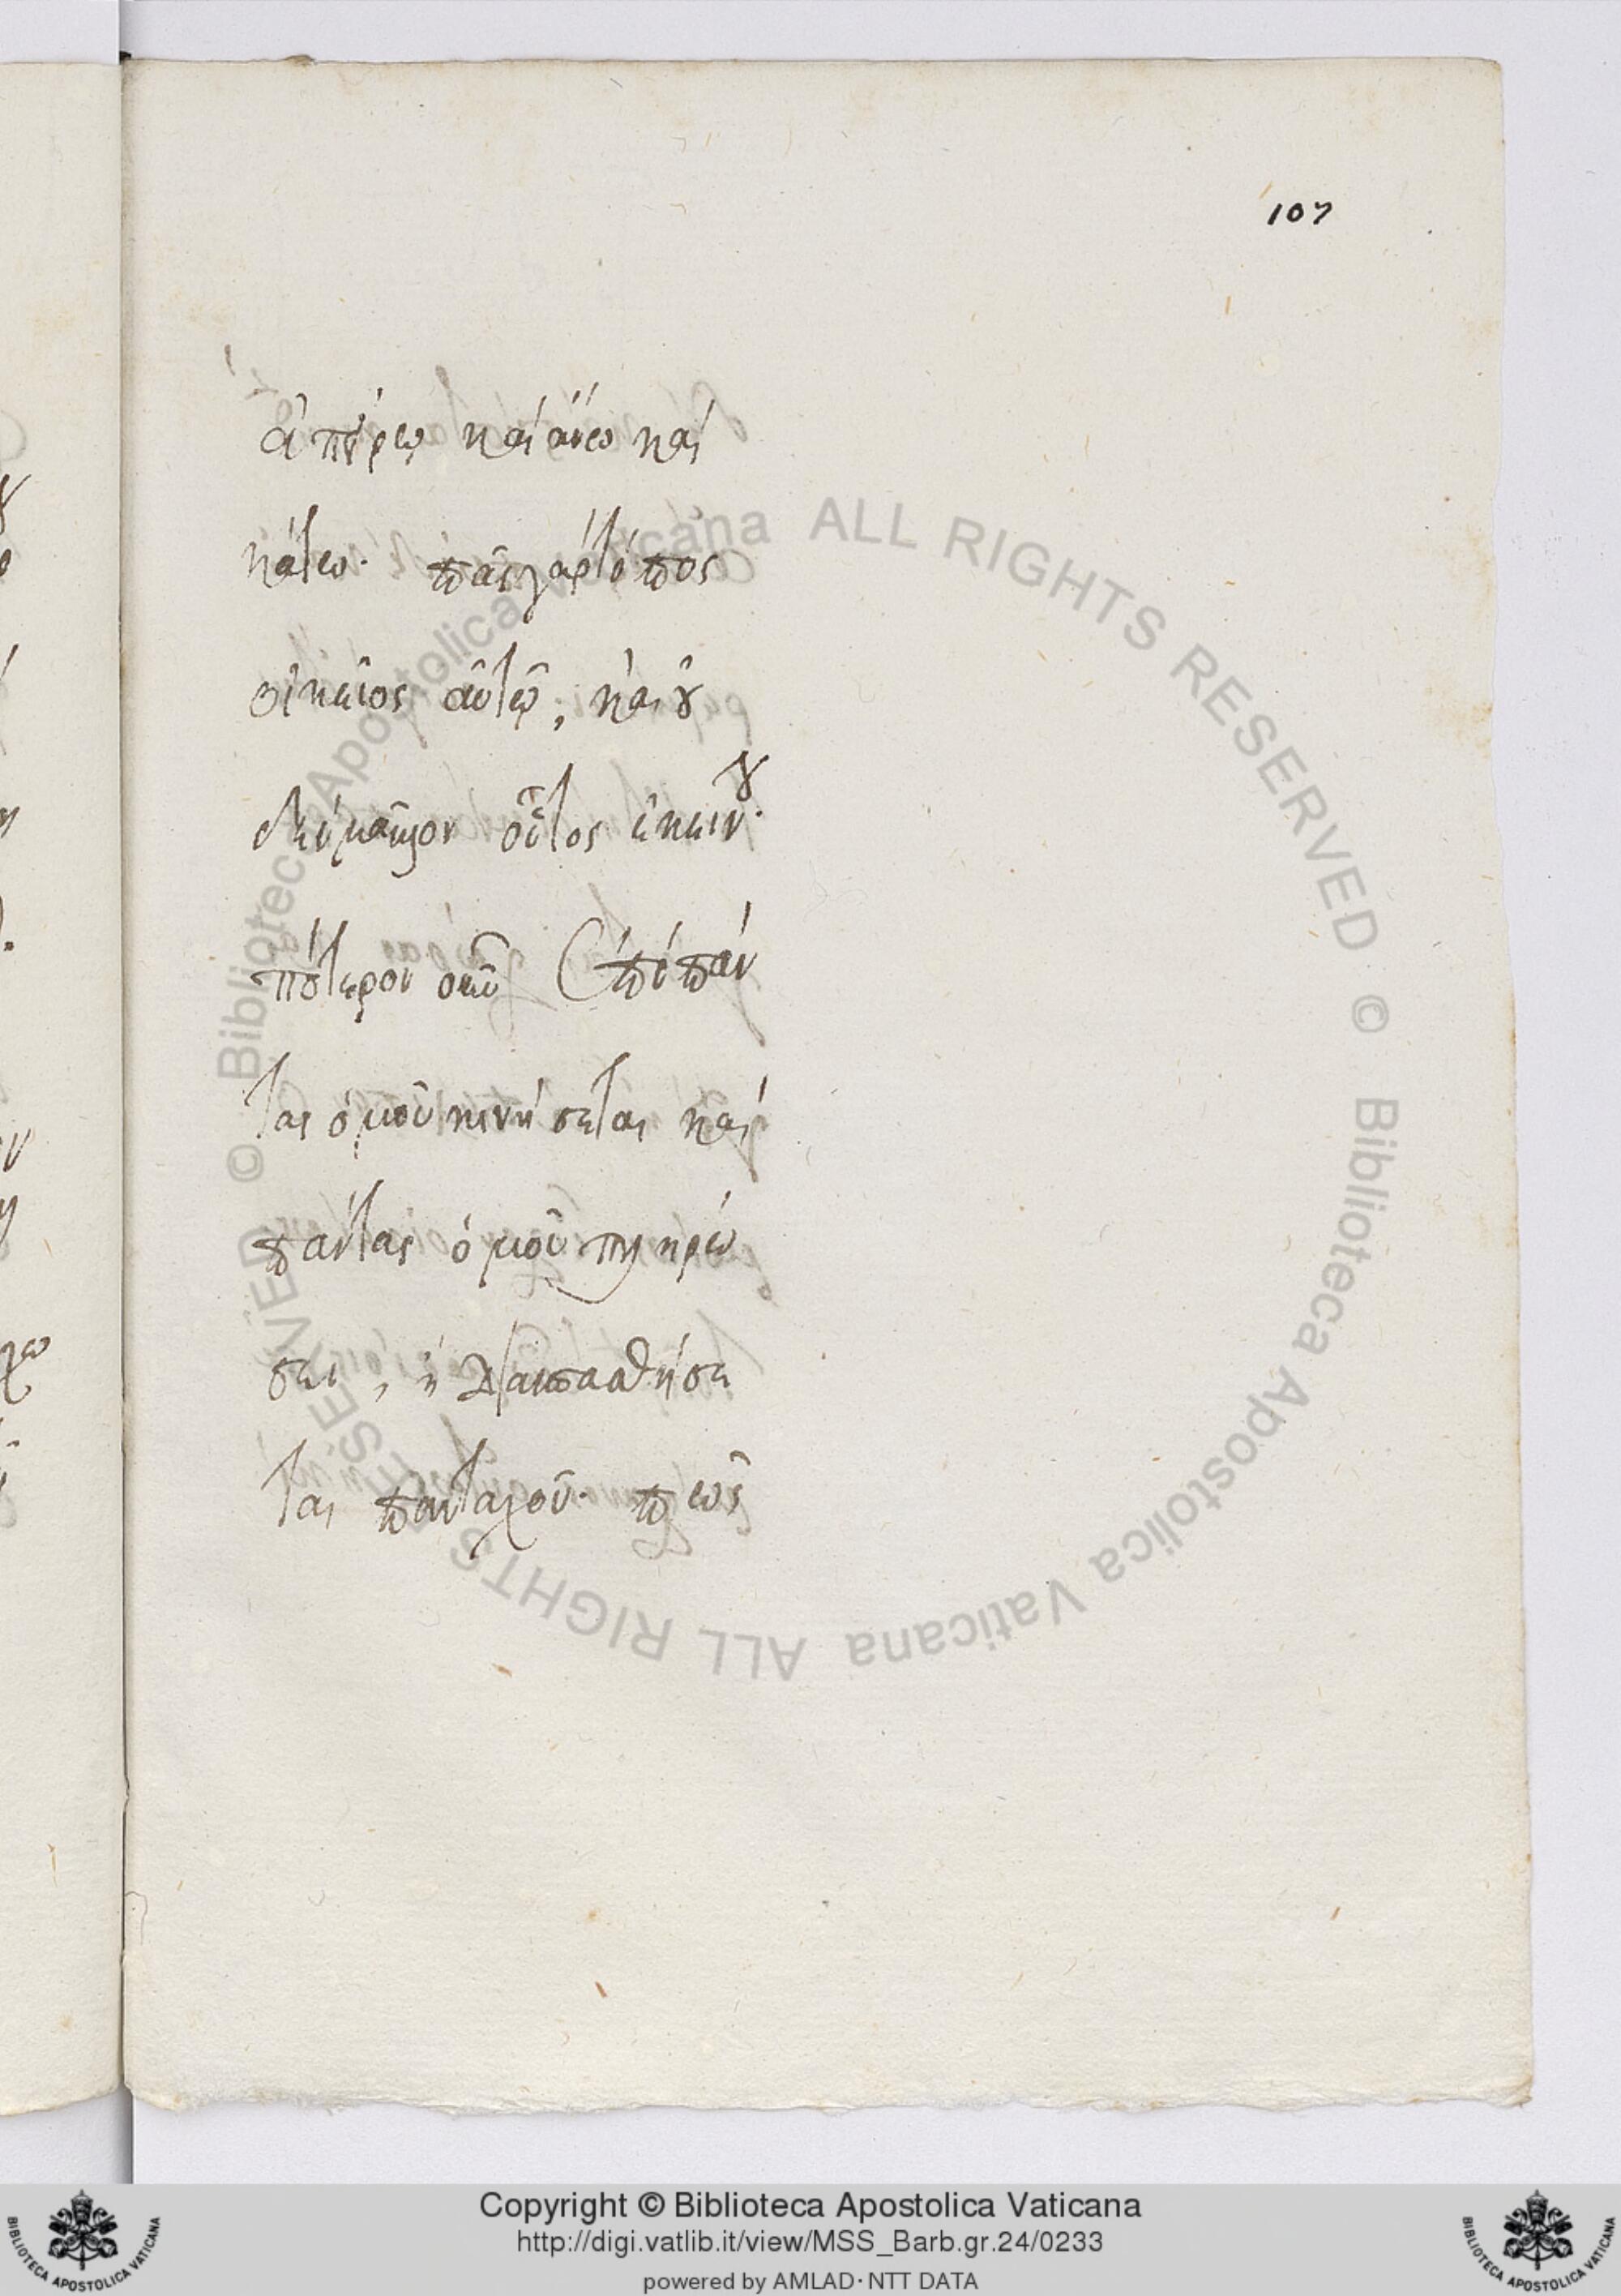 107
ἀπείρῳ καὶ ἄνω καὶ
κάτω· πᾶς γὰρ τόπος
οἰκεῖος αὐτῷ, καὶ οὐ
δεὶ μᾶλλον οὗτος ἐκείνου·
πότερον οὖν ἐπὶ πάν
τας ὁμοῦ κινήσεται καὶ
πάντας ὁμοῦ πληρώ
σει, ἢ διασπασθήσε
ται πανταχοῦ· πῶς
© Biblioteca Apostolica Vaticana ALL RIGHTS RESERVED © Biblioteca Apostolica Vaticana ALL RIGHTS RESERVED
Copyright © Biblioteca Apostolica Vaticana
http://digi.vatlib.it/view/MSS_Barb.gr.24/0233
powered by AMLAD·NTT DATA
BIBLIOTECA APOSTOLICA VATICANA
BIBLIOTECA APOSTOLICA VATICANA